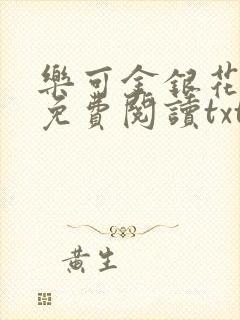 樂可金銀花
免費閱讀txt
黃生